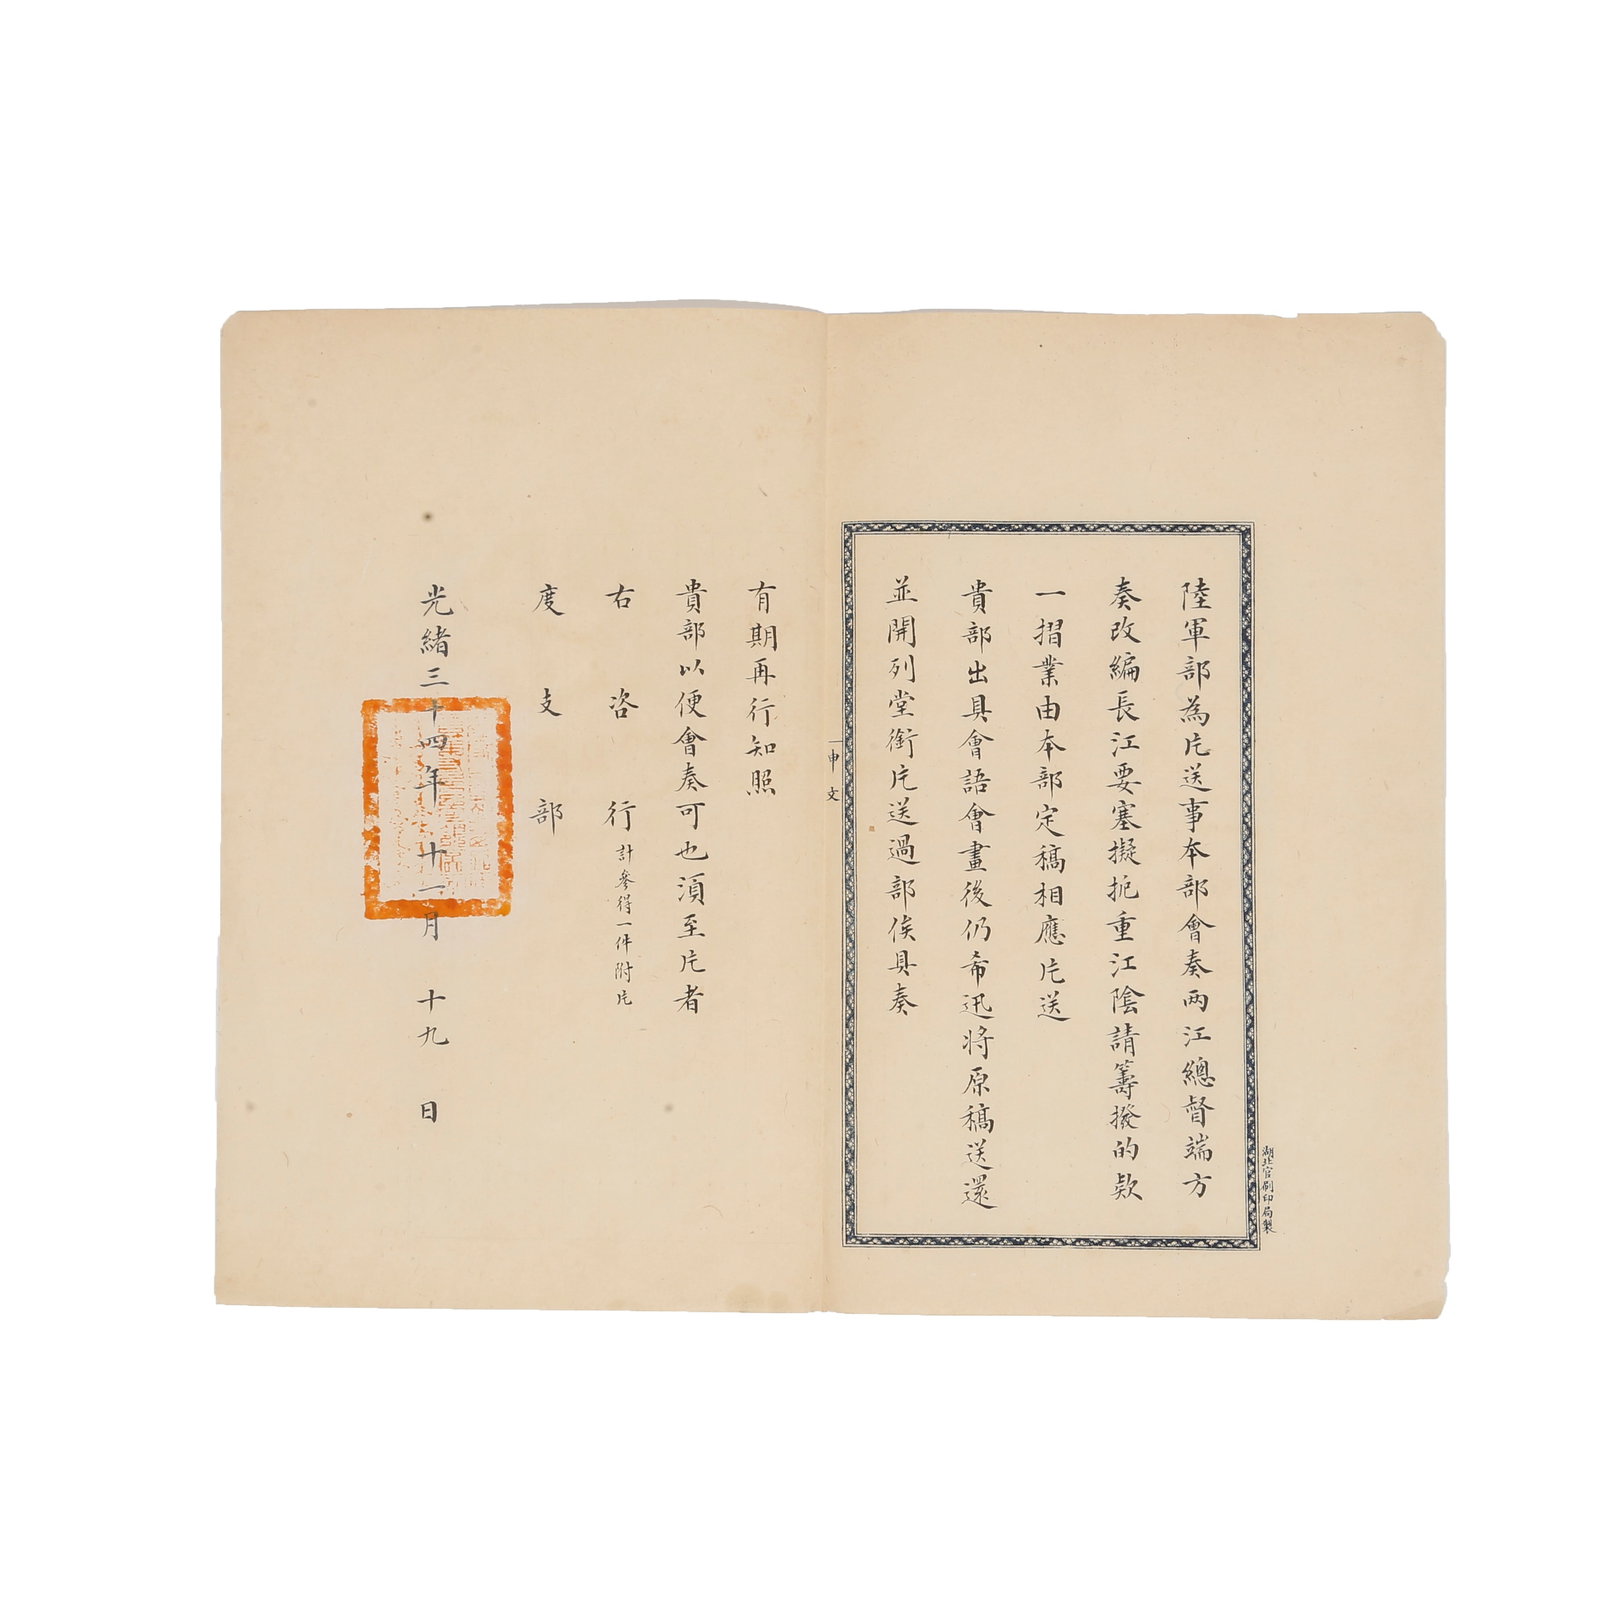 陸軍部為片送事本部會奏两江總督端方
奏改編長江要塞擬扼重江陰請籌撥的款
一摺業由本部定稿相應片送
貴部出具會語會畫後仍希迅將原稿送還
並開列堂銜片送過部俟具奏
湖北官刷印局製
申文
有期再行知照
貴部以便會奏可也須至片者
右咨行計參得一件附片
度支部
光緒三十四年十一月十九日